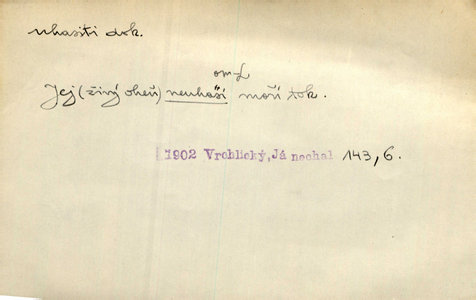 uhasiti dok.
oml
Jej (živý oheň) neuhasí moří tok.
1902 Vrchlický, Já nechal 143, 6.